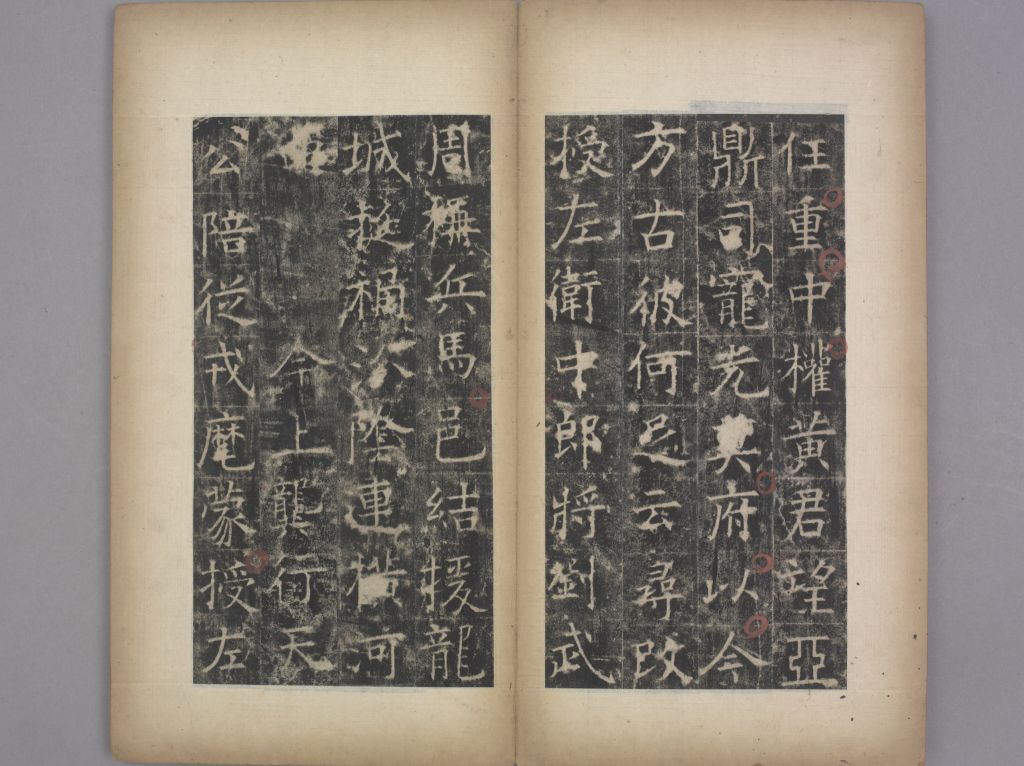 任重中權黃君望亞
鼎司寵光莫府以今
方古彼何足云尋改
授左衛中郎將劉武
周稱兵馬邑結援龍
城挺禍汾陰連橫河
今上龔行天
公陪從戎麾蒙授左